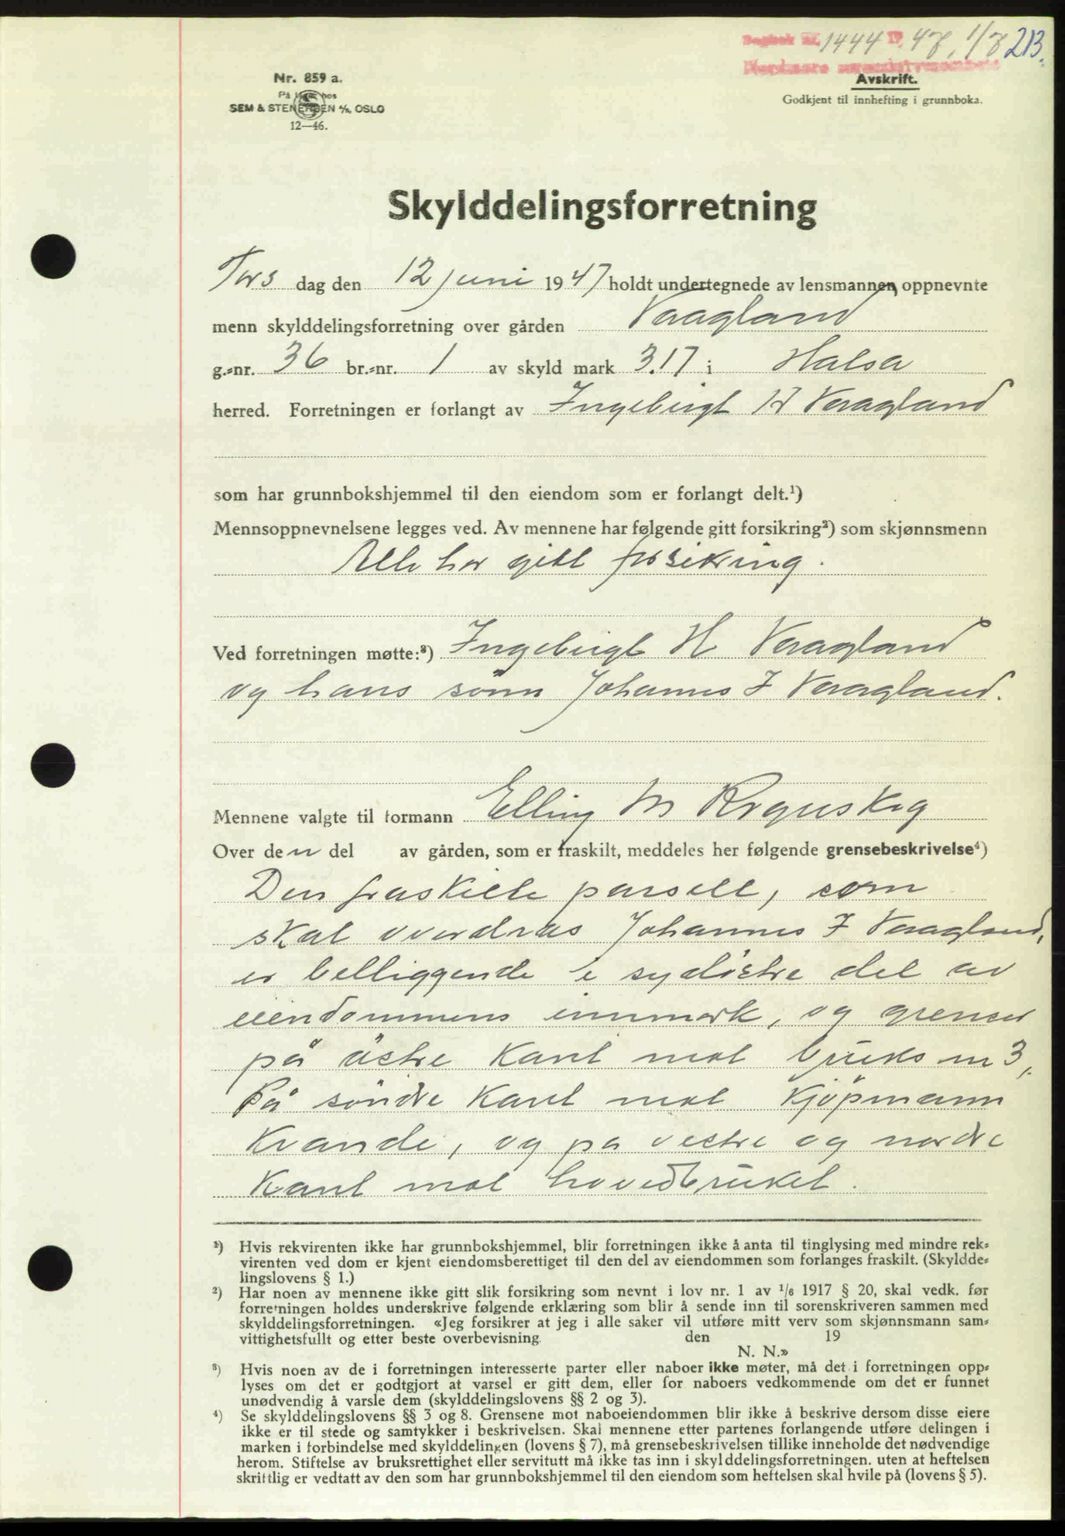 Dagbok nr. 1444 19 47, 1/7 213.
Nordmøre sorenskriverembete
Nr. 859 a.
Avskrift.
På lager hos
SEM & STENERSEN A/S, OSLO
Godkjent til innhefting i grunnboka.
12—46.
Skylddelingsforretning
Tors dag den 12 juni 1947 holdt undertegnede av lensmannen oppnevnte
menn skylddelingsforretning over gården Vaagland
g.-nr. 36 br.-nr. 1 av skyld mark 3.17 i Halsa
herred. Forretningen er forlangt av Ingebrigt H Vaagland
som har grunnbokshjemmel til den eiendom som er forlangt delt.¹)
Mennsoppnevnelsene legges ved. Av mennene har følgende gitt forsikring²) som skjønnsmenn
Alle har gitt forsikring.
Ved forretningen møtte:³) Ingebrigt H Vaagland
og hans sønn Johannes I Vaagland.
Mennene valgte til formann Elling M
Over den del av gården, som er fraskilt, meddeles her følgende grensebeskrivelse⁴)
Den fraskilte parsell, som
skal overdras Johannes I Vaagland,
er belliggende i sydöstre del av
eiendommens innmark, og grenser
på östre kant mot bruks nr 3,
På söndre kant mot Kjöpmann
Kvande, og på vestre og nordre
kant mot hovedbruket.
¹) Hvis rekvirenten ikke har grunnbokshjemmel, blir forretningen ikke å anta til tinglysing med mindre rek-
virenten ved dom er kjent eiendomsberettiget til den del av eiendommen som forlanges fraskilt. (Skyldde-
lingslovens § 1.)
²) Har noen av mennene ikke gitt slik forsikring som nevnt i lov nr. 1 av ¹/₆ 1917 § 20, skal vedk. før
forretningen holdes underskrive følgende erklæring som blir å sende inn til sorenskriveren sammen med
skylddelingsforretningen. «Jeg forsikrer at jeg i alle saker vil utføre mitt verv som skjønnsmann sam-
vittighetsfullt og etter beste overbevisning den 19
N. N.»
³) Hvis noen av de i forretningen interesserte parter eller naboer ikke møter, må det i forretningen opp-
lyses om det er godtgjort at varsel er gitt dem, eller for naboers vedkommende om det er funnet
unødvendig å varsle dem (skylddelingslovens §§ 2 og 3).
⁴) Se skylddelingslovens §§ 3 og 8. Grensene mot naboeiendommen blir ikke å beskrive dersom disse eiere
ikke er til stede og samtykker i beskrivelsen. Skal mennene etter partenes forlangende utføre delingen i
marken i forbindelse med skylddelingen (lovens § 7), må grensebeskrivelsen tillike inneholde det nødvendige
herom. Stiftelse av bruksrettighet eller servitutt må ikke tas inn i skylddelingsforretningen. uten at heftelsen
skriftlig er vedtatt av den som har grunnbokshjemmel til den eiendom som heftelsen skal hvile på (lovens § 5).